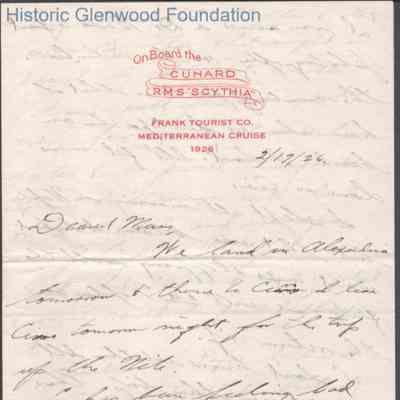 Historic Glenwood Foundation
On Board the
CUNARD
RMS "SCYTHIA"
FRANK TOURIST CO.
MEDITERRANEAN CRUISE
1926
2/17/26
Dearest
We land in
tomorrow & thence to
tomorrow night for the trip
up the Nile.
has been feeling bad